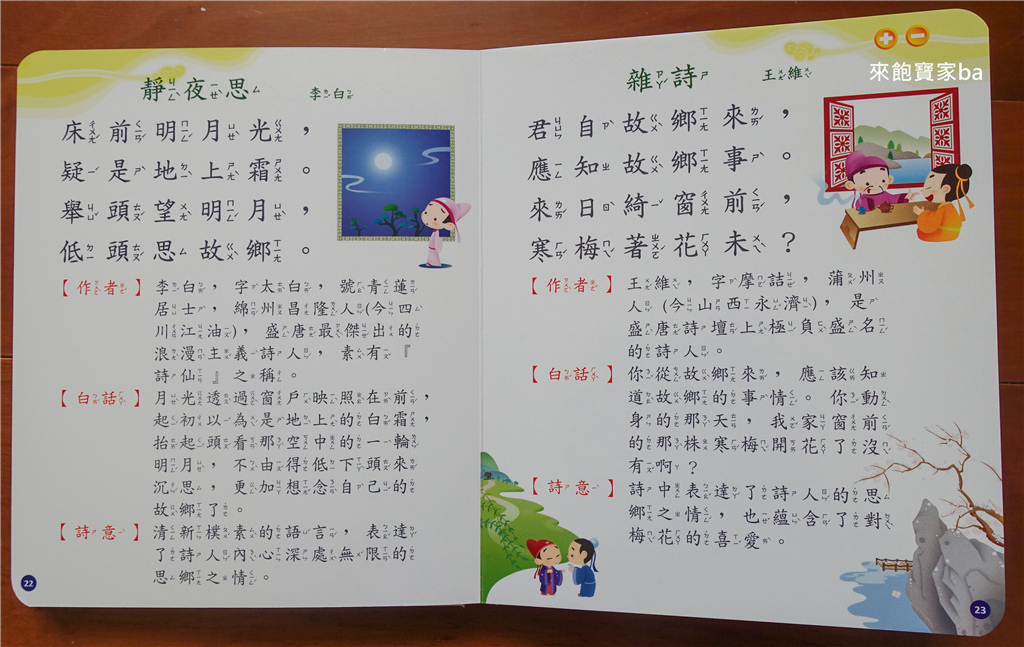 靜夜思 李白
床前明月光，
疑是地上霜。
舉頭望明月，
低頭思故鄉。
【作者】李白，字太白，號青蓮
居士，綿州昌隆人(今四
川江油)，盛唐最傑出的
浪漫主義詩人，素有『
詩仙』之稱。
【白話】月光透過窗戶映照在前，
起初以為是地上的白霜，
抬起頭看那空中的一輪
明月，不由得低下頭來
沉思，更加想念自己的
故鄉了。
【詩意】清新樸素的語言，表達
了詩人內心深處無限的
思鄉之情。
22
來飽寶家ba
雜詩 王維
君自故鄉來，
應知故鄉事。
來日綺窗前，
寒梅著花未？
【作者】王維，字摩詰，蒲州
人(今山西永濟)，是
盛唐詩壇上極負盛名
的詩人。
【白話】你從故鄉來，應該知
道故鄉的事情。你動
身的那天，我家窗前
的那株寒梅開花了沒
有啊？
【詩意】詩中表達了詩人的思
鄉之情，也蘊含了對
梅花的喜愛。
23